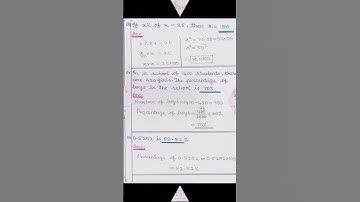 If x% of x = 25, then x = 50
Ans:
x% x x = 25
x/100 x x = 25
x x x = 25x100
x² = 2500 = 50x50
x² = 50²
x = 50
In a school of 1400 students, there
are 420 girls. The percentage of
boys in the school is 70%
Ans:
Number of boys = 1400-420 = 980
Percentage of boys = 980/1400 x 100%
= 70%
0.5252 is 52.52%
Ans:
Percentage of 0.5252 = 0.5252x100
= 52.52%